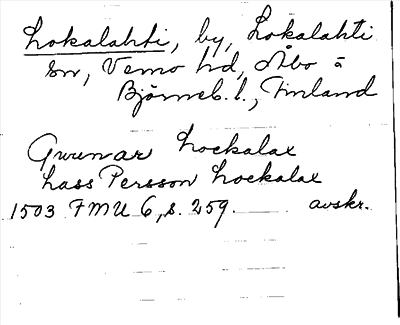 Lokalahti, by, Lokalahti
sn, Vemo hd, Åbo å
Björneb. l., Finland
Gwnnar Lockalax
Lass Persson Lockalax
1503 FMU 6, s. 259. avskr.